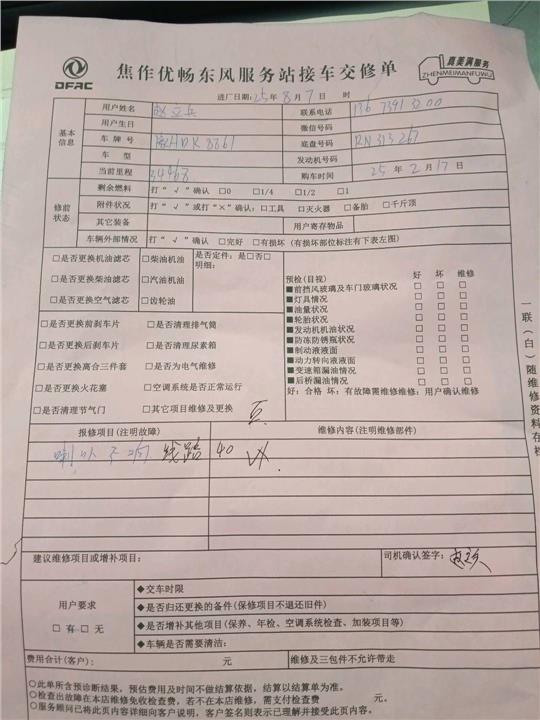 DFAC
焦作优畅东风服务站接车交修单
真美满服务
ZHENMEIMANFUWU
进厂日期:25年8月7日 时
基本信息
用户姓名 赵立兵 联系电话
用户生日 微信号码
车牌号 底盘号码 RN313267
车型 发动机号码
当前里程 34468 购车时间 25年2月17日
修前状态
剩余燃料 打“√”确认 □0 □1/4 □1/2 □1
附件状况 打“√”或打“×”确认:□工具 □灭火器 □备胎 □千斤顶
其它装备 用户寄存物品
车辆外部情况 打“√”确认 □完好 □有损坏(有损坏部位标注有下表左图)
□是否更换机油滤芯 □柴油机油 是否定件:是□否□
□是否更换柴油滤芯 □汽油机油 明细:
□是否更换空气滤芯 □齿轮油
预检(目视) 好 坏 维修
■前挡风玻璃及车门玻璃状况 □ □ □
■灯具情况 □ □ □
■油量状况 □ □ □
■轮胎状况 □ □ □
■发动机机油状况 □ □ □
■防冻防锈瓶状况 □ □ □
■制动液液面 □ □ □
■动力转向液液面 □ □ □
■变速箱漏油情况 □ □ □
■后桥漏油情况 □ □ □
好:合格 坏:有故障需维修维修:用户确认维修
□是否更换前刹车片 □是否清理排气筒
□是否更换后刹车片 □是否清理尿素箱
□是否更换离合三件套 □是否为电气维修
□是否更换火花塞 □空调系统是否正常运行
□是否清理节气门 □其它项目维修及更换
一联(白)随维修资料存档
报修项目(注明故障) 维修内容(注明维修部件)
喇叭不响 线路 40
建议维修项目或增补项目: 司机确认签字:
用户要求
□有 □无
◆交车时限
◆是否归还更换的备件(保修项目不退还旧件)
◆是否增补其他项目(保养、年检、空调系统检查、加装项目等)
◆车辆是否需要清洁:
费用合计(客户): 元 维修及三包件不允许带走
○此单所含预诊断结果,预估费用及时间不做结算依据,结算以结算单为准。
○检查出故障在本店维修免收检查费,若不在本店维修,需支付检查费 元。
○服务顾问已将此页内容详细向客户说明,客户签名则表示已理解并接受此页内容。